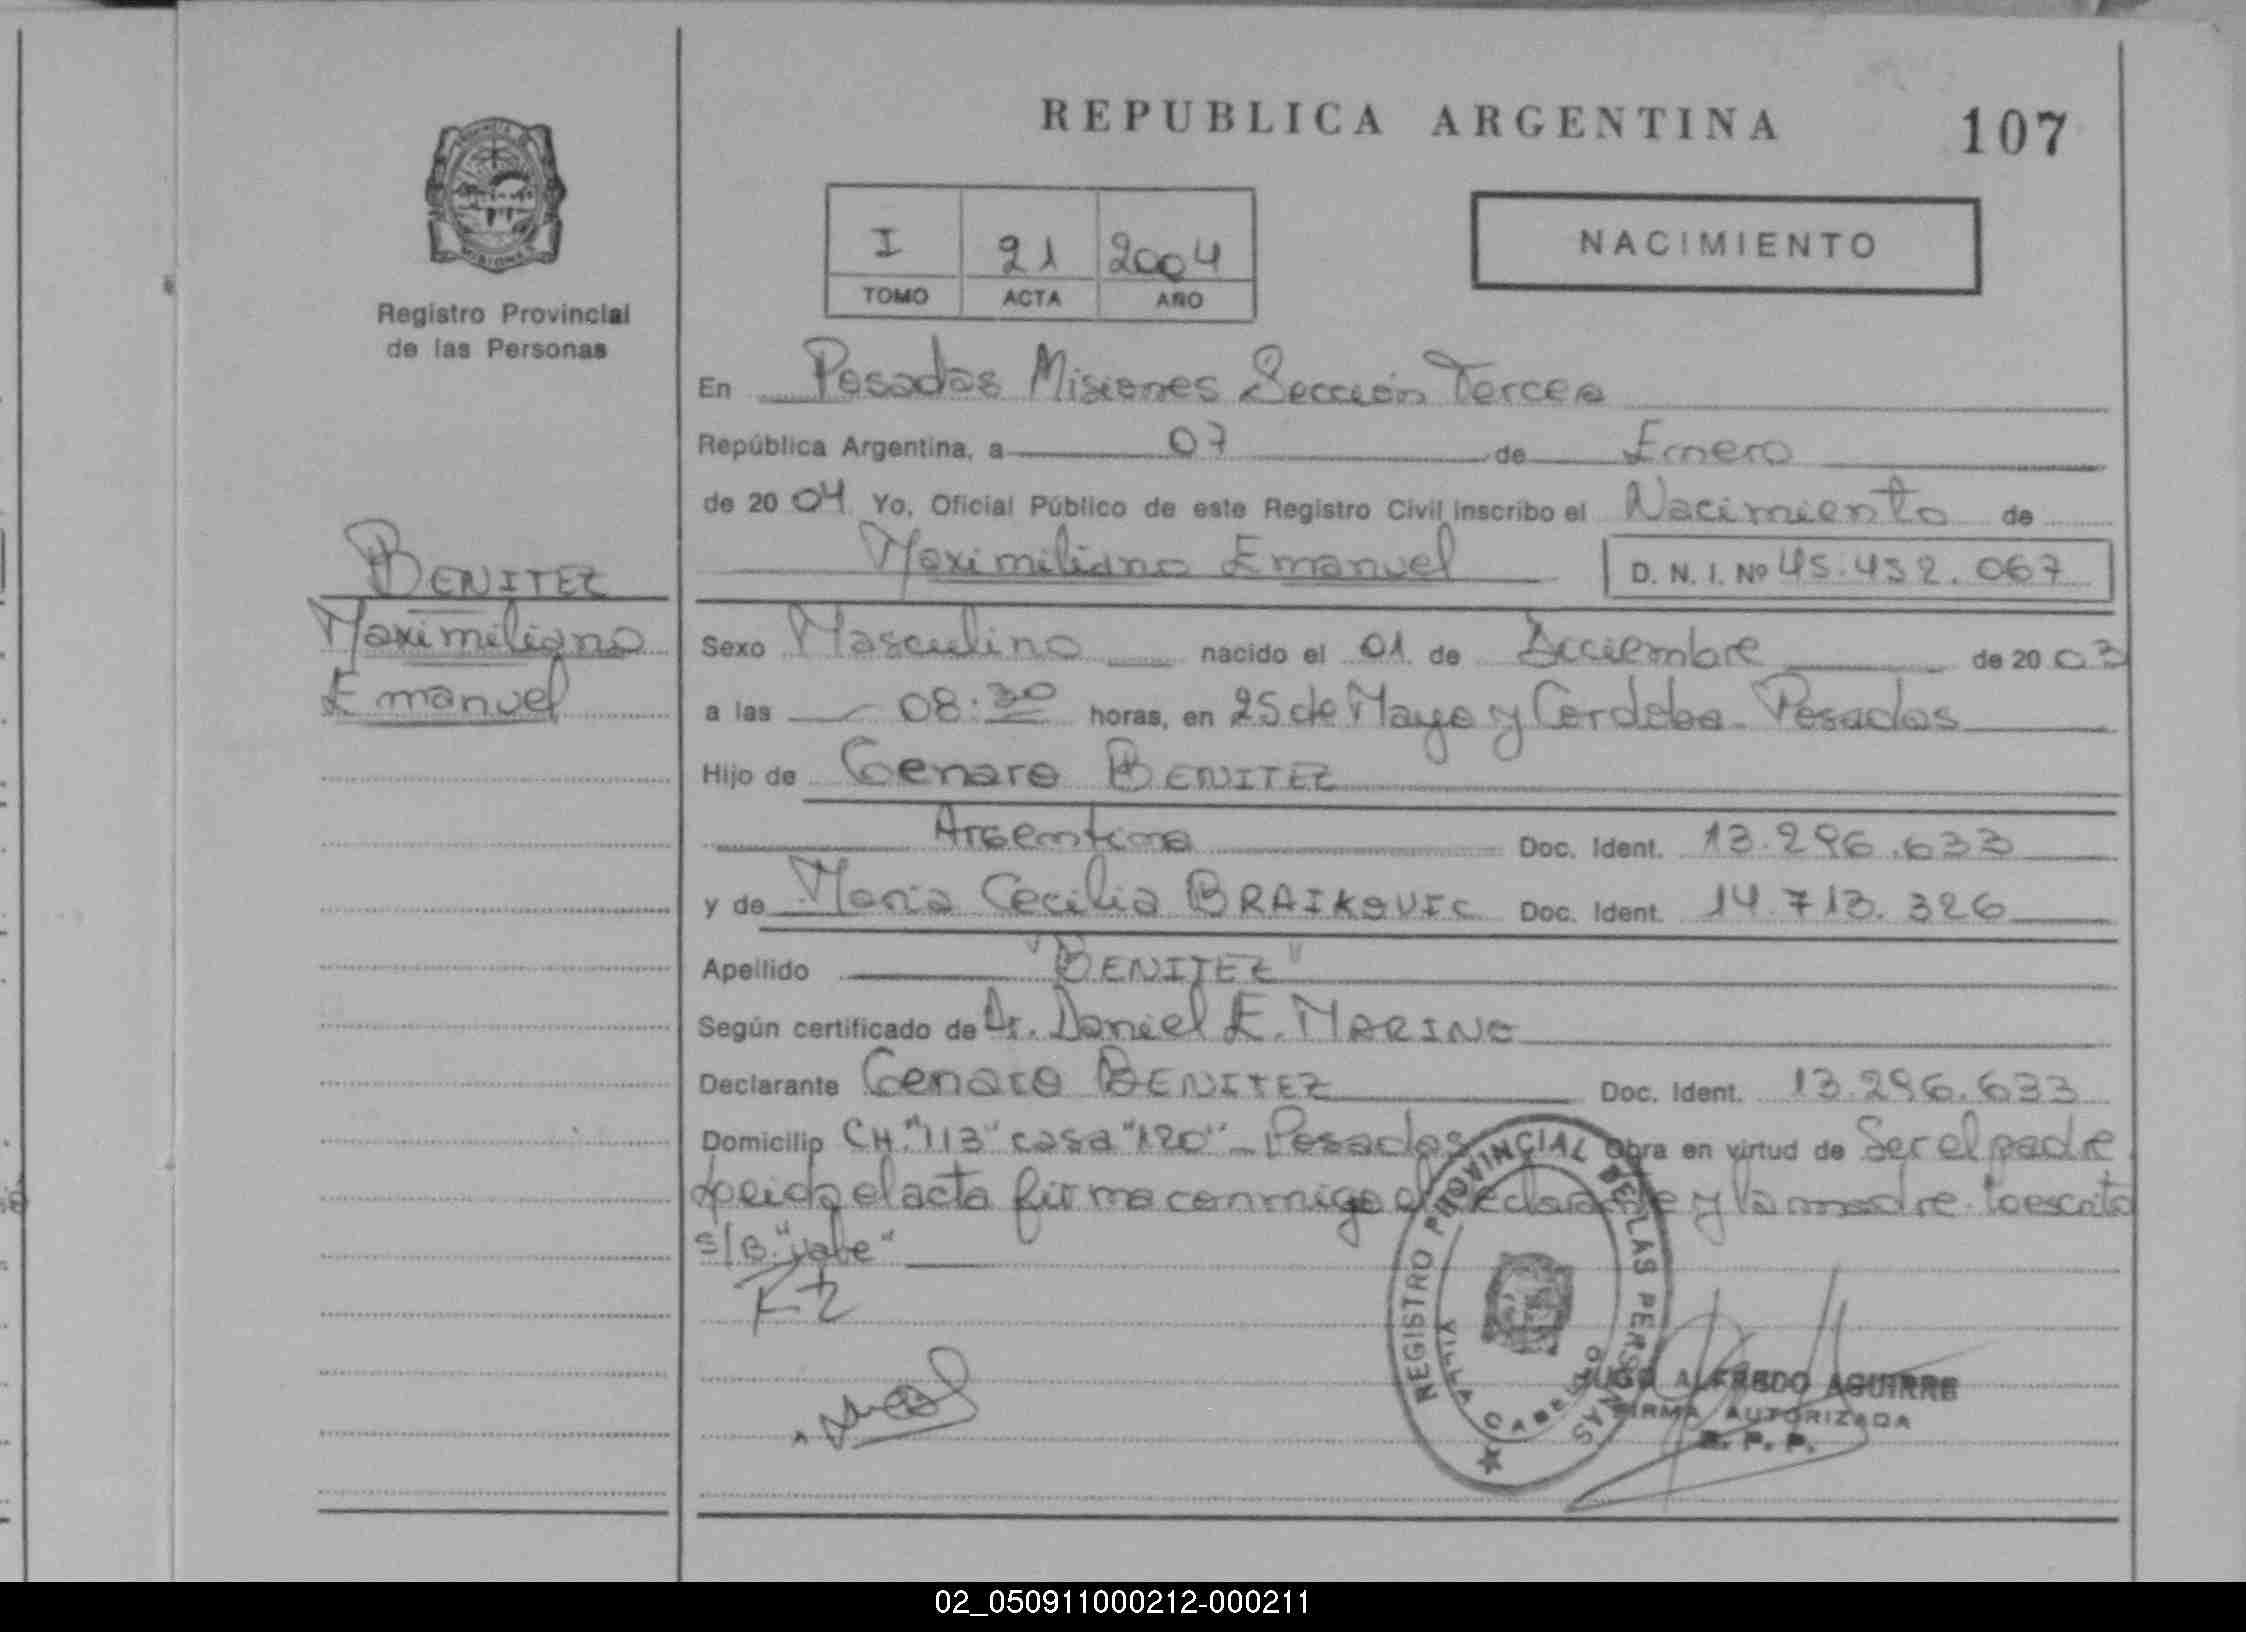 REPUBLICA ARGENTINA
107
I 21 2004
TOMO ACTA AÑO
NACIMIENTO
Registro Provincial
de las Personas
BENITEZ
Maximiliano
Emanuel
En Posadas Misiones Sección Tercera
República Argentina, a 07 de Enero
de 2004 Yo, Oficial Público de este Registro Civil inscribo el Nacimiento de
Maximiliano Emanuel D. N. I. Nº 45.452.067
Sexo Masculino nacido el 01 de Diciembre de 2003
a las 08:30 horas, en 25 de Mayo y Cordoba Posadas
Hijo de Genaro BENITEZ
Argentina Doc. Ident. 13.296.633
y de Maria Cecilia BRAIKOVIC Doc. Ident. 14.713.326
Apellido "BENITEZ"
Según certificado de Dr. Daniel E. MARINO
Declarante Genaro BENITEZ Doc. Ident. 13.296.633
Domicilio CH."113" casa "120" - Posadas Obra en virtud de Ser el padre
Leida el acta firma conmigo el declarante y la madre. Lo escrito
s/B. "vale"
REGISTRO PROVINCIAL DE LAS PERSONAS
VILLA CABELLO
HUGO ALFREDO AGUIRRE
FIRMA AUTORIZADA
R. P. P.
02_050911000212-000211